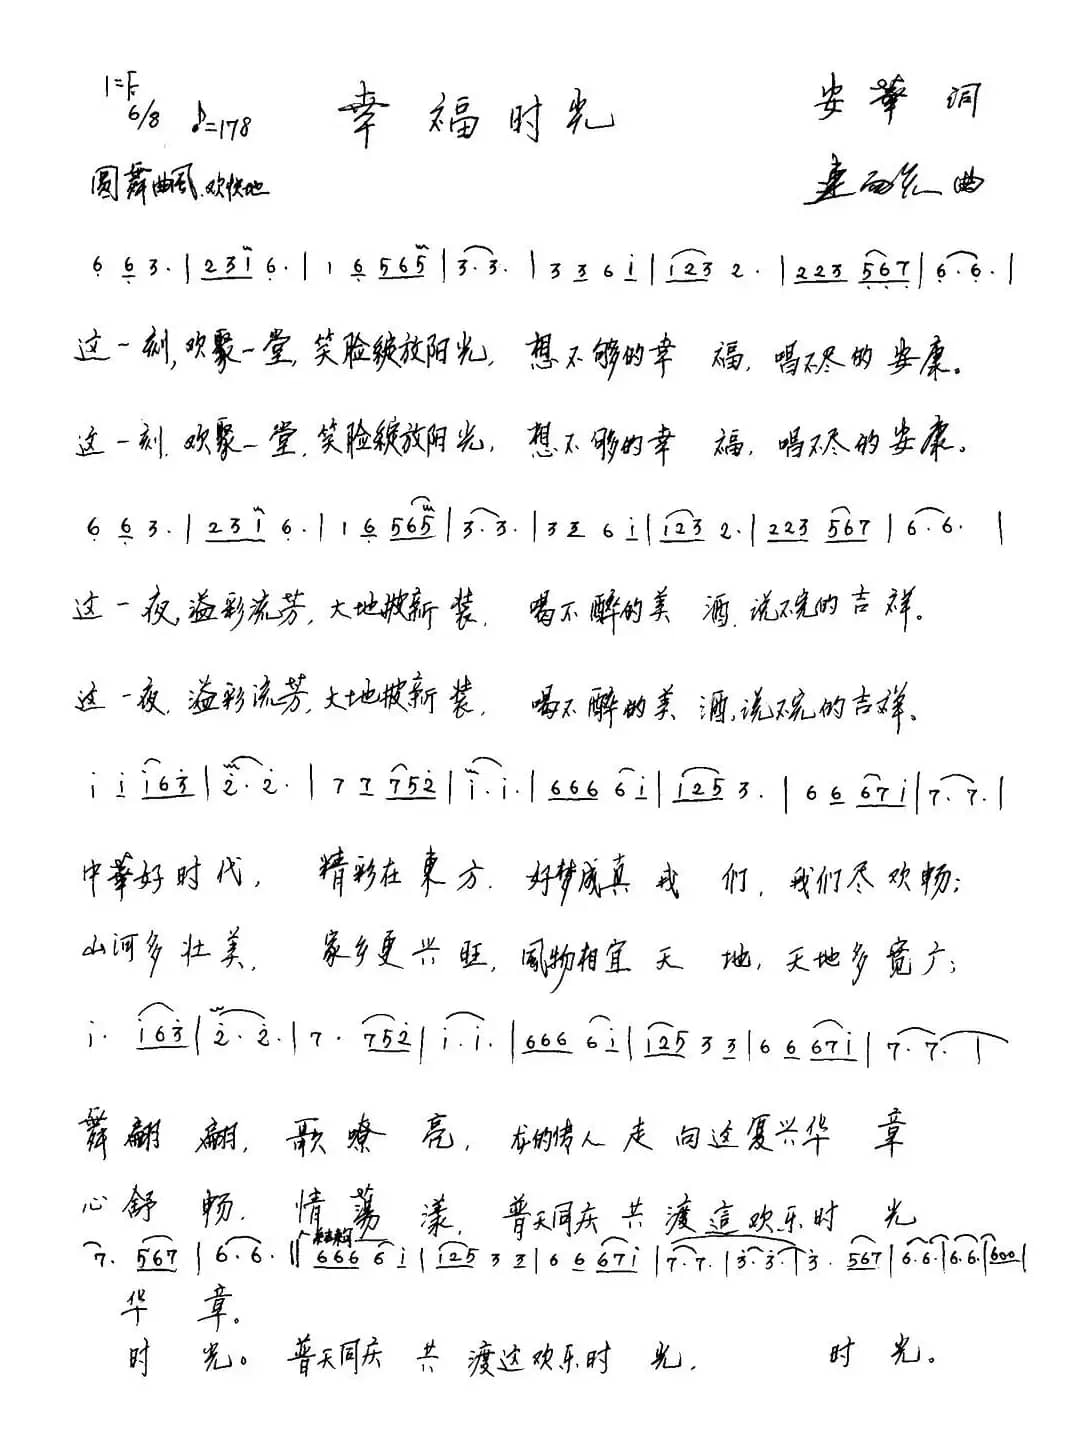 1=F
6/8 ♪=178 幸福时光 安華 词
圆舞曲风 欢快地 曲
6 6 3. | 2 3 i 6. | 1 6 5 6 5 | 3. 3. | 3 3 6 i | 1 2 3 2. | 2 2 3 5 6 7 | 6. 6. |
这一刻,欢聚一堂,笑脸绽放阳光,想不够的幸福,唱不尽的安康。
这一刻,欢聚一堂,笑脸绽放阳光,想不够的幸福,唱不尽的安康。
6 6 3. | 2 3 i 6. | 1 6 5 6 5 | 3. 3. | 3 3 6 i | 1 2 3 2. | 2 2 3 5 6 7 | 6. 6. |
这一夜,溢彩流芳,大地披新装,喝不醉的美酒,说不完的吉祥。
这一夜,溢彩流芳,大地披新装,喝不醉的美酒,说不完的吉祥。
i i i 6 3 | 2. 2. | 7 7 7 5 2 | i. i. | 6 6 6 6 i | 1 2 5 3. | 6 6 6 7 i | 7. 7. |
中華好时代,精彩在東方.好梦成真我们,我们尽欢畅;
山河多壮美,家乡更兴旺,風物相宜天地,天地多宽广;
i. i 6 3 | 2. 2. | 7. 7 5 2 | i. i. | 6 6 6 6 i | 1 2 5 3 3 | 6 6 6 7 i | 7. 7. |
舞翩翩,歌嘹亮,龙的传人走向这复兴华章
心舒畅,情荡漾,普天同庆共渡這欢乐时光
7. 5 6 7 | 6. 6. || 结构 6 6 6 6 i | 1 2 5 3 3 | 6 6 6 7 i | 7. 7. | 3. 3. | 3. 5 6 7 | 6. 6. | 6. 6. | 6 0 0 |
华章。
时光。普天同庆共渡这欢乐时光,时光。